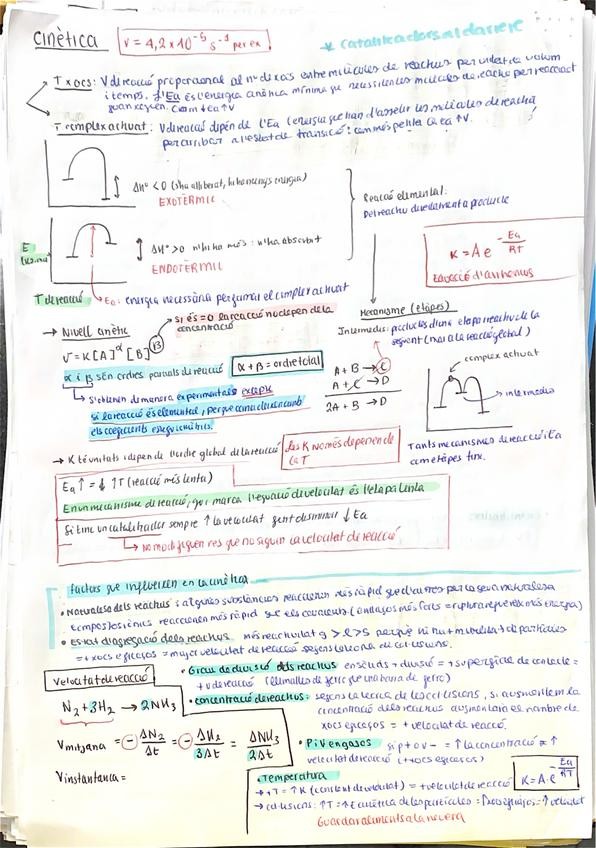 cinètica
v = 4,2 x 10⁻⁵ s⁻¹ per ex.
* catalitzadors al darrere
T xocs: V de reacció proporcional al nº de xocs entre molècules de reactius per unitat de volum
i temps. L'Ea és l'energia cinètica mínima que necessiten les molècules de reactiu per reaccionar
quan xoquen. Com ↓Ea ↑V
T complex activat: V de reacció depèn de l'Ea (energia que han d'assolir les molècules de reactiu
per arribar a l'estat de transició: com més petita la Ea ↑V.
ΔHº < 0 (s'ha alliberat, hi ha menys energia)
EXOTÈRMIC
Reacció elemental:
De reactiu directament a producte
E
ΔHº > 0 n'hi ha més: n'ha absorbit
ENDOTÈRMIC
K = A e^(-Ea/RT)
Equació d'arrhenius
T de reacció
Ea: energia necessària per formar el complex activat
→ Nivell cinètic
si és = 0 la reacció no depen de la
concentració
v = K [A]^α [B]^β
α i β són ordres parcials de reacció
α + β = ordre total
s'obtenen de manera experimental excepte
si la reacció és elemental, perquè coincideixen amb
els coeficients estequiomètrics.
Mecanisme (etapes)
Intermedis: productes d'una etapa reactiu de la
següent (no a la reacció global)
A + B → C
A + C → D
2A + B → D
complex activat
intermedis
Tants mecanismes de reacció i Ea
com etapes tinc.
→ K té unitats i depèn de l'ordre global de la reacció
Les K només depenen de
la T
Ea ↑ = ↓ ↑T (reacció més lenta)
En un mecanisme de reacció, qui marca l'equació de velocitat és l'etapa lenta
Si tinc un catalitzador sempre ↑ la velocitat fent disminuir ↓ Ea
→ No modifiquen res que no sigui la velocitat de reacció
Factors que influeixen en la cinètica
• Naturalesa dels reactius: algunes substàncies reaccionen més ràpid que d'altres per la seva naturalesa
compostos iònics reaccionen més ràpid que els covalents (enllaços més forts = ruptura requereix més energia)
• Estat d'agregació dels reactius més reactivitat g > l > s perquè hi ha + mobilitat de partícules
= + xocs eficaços = major velocitat de reacció segons la teoria de col·lisions.
• Grau de divisió dels reactius en sòlids + divisió = + superfície de contacte =
+ v de reacció (llimalles de ferro que una barra de ferro)
• concentració de reactius: segons la teoria de les col·lisions, si augmentem la
concentració dels reactius augmentarà el nombre de
xocs eficaços = + velocitat de reacció.
• P i V en gasos si p + o v - = ↑ la concentració = ↑
velocitat de reacció (+ xocs eficaços)
• Temperatura
→ +T = ↑K (constant de velocitat) = + velocitat de reacció
K = A·e^(-Ea/RT)
→ col·lisions: ↑T = ↑E cinètica de les partícules = ↑ xocs eficaços = ↑ velocitat
Guardar aliments a la nevera
Velocitat de reacció
N₂ + 3H₂ → 2NH₃
Vmitjana = - ΔN₂/Δt = - ΔH₂/3Δt = ΔNH₃/2Δt
Vinstantània =